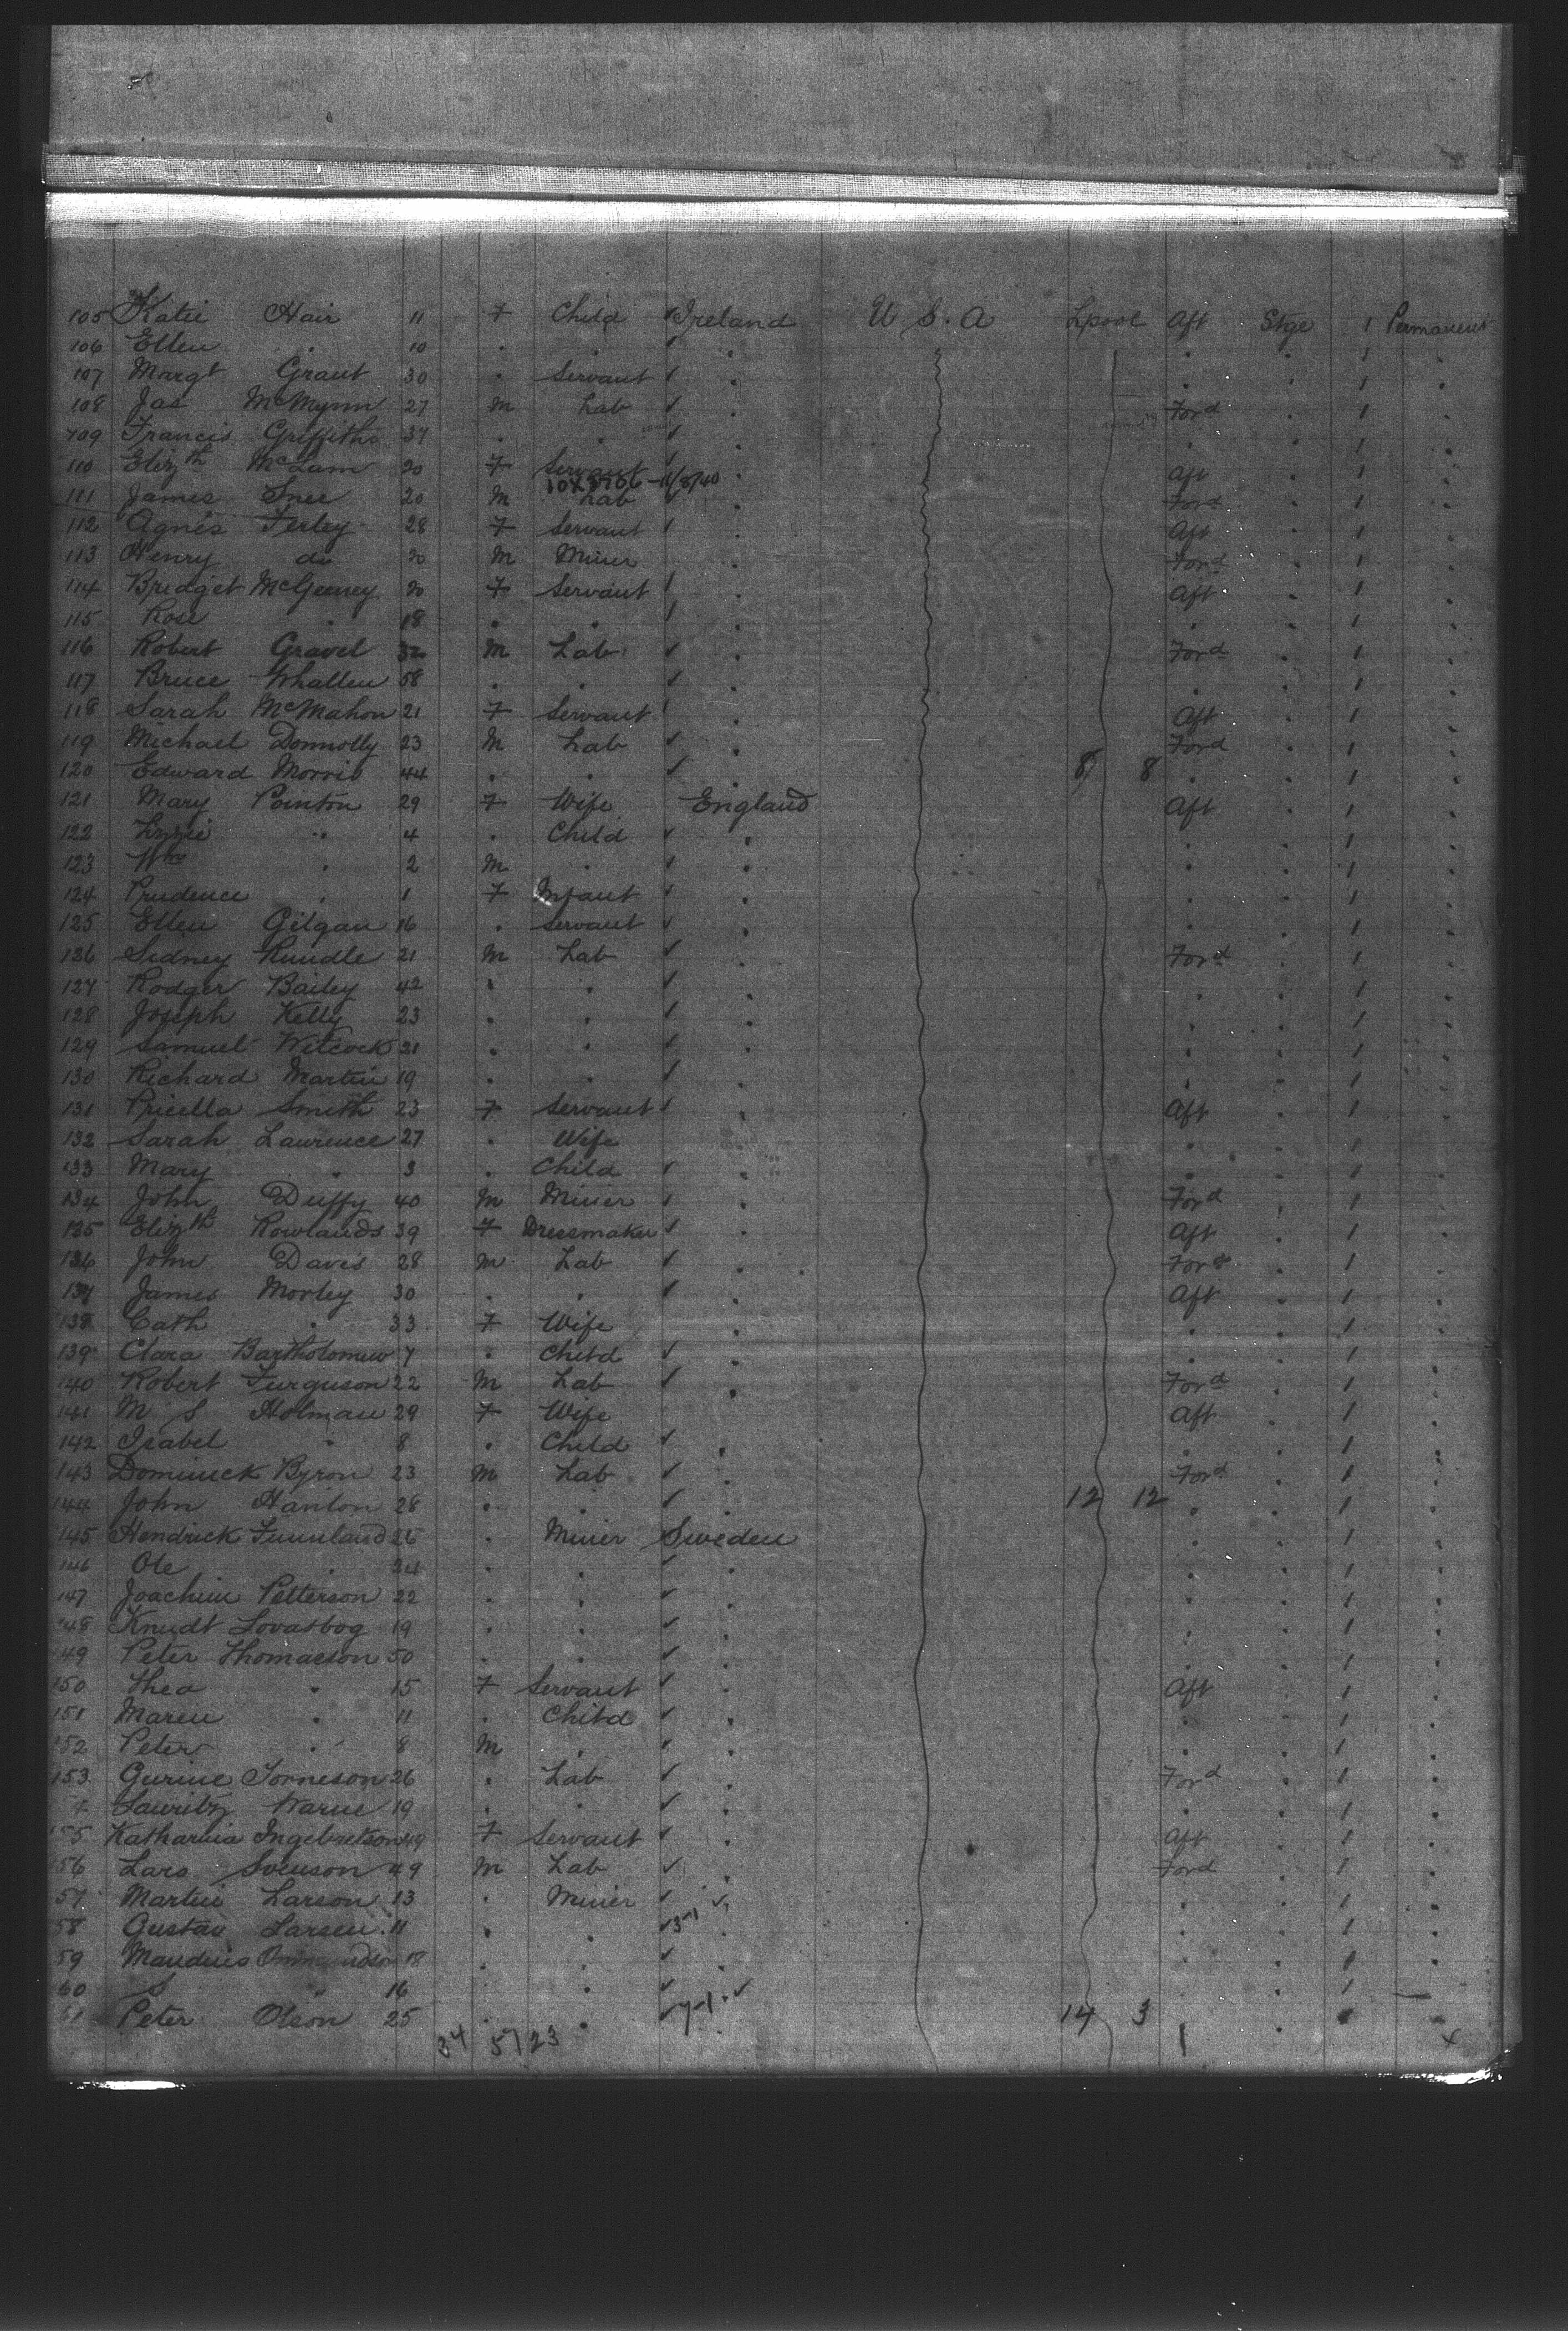 105 Katie Hair 11 F Child Ireland U S. A Lpool Aft Stge 1 Permanent
106 Ellen . 10 . . . . . 1 .
107 Margt Grant 30 . Servant . . . 1 .
108 Jas McMynn 27 M Lab . Ford . 1 .
109 Francis Griffiths 37 . . . . . 1 .
110 Elizth McLam 20 F Servant . Aft . 1 .
10X3766 - 11/8/40
111 James Snee 20 M Lab Ford . 1 .
112 Agnes Ferley 28 F Servant . Aft . 1 .
113 Henry do 20 M Miner . Ford . 1 .
114 Bridget McGeeney 20 F Servant . Aft . 1 .
115 Rose . 18 . . . . . 1 .
116 Robert Gravel 32 M Lab . Ford . 1 .
117 Bruce Whallen 58 . . . . . 1 .
118 Sarah McMahon 21 F Servant . Aft . 1 .
119 Michael Donnolly 23 M Lab . Ford . 1 .
120 Edward Morris 44 . . . 8 8 . . 1 .
121 Mary Pointon 29 F Wife England Aft . 1 .
122 Lizzie " 4 . Child . . . 1 .
123 Wm . 2 M . . . . 1 .
124 Prudence . 1 F Infant . . . 1 .
125 Ellen Gilgan 16 . Servant . . . 1 .
126 Sidney Rundle 21 M Lab . Ford . 1 .
127 Rodger Bailey 42 . . . . . 1 .
128 Joseph Kelly 23 . . . . . 1 .
129 Samuel Witcock 21 . . . . . 1 .
130 Richard Martin 19 . . . . . 1 .
131 Pricella Smith 23 F Servant . Aft . 1 .
132 Sarah Lawrence 27 . Wife . . . 1 .
133 Mary . 3 . Child . . . 1 .
134 John Duffy 40 M Miner . Ford . 1 .
135 Elizth Rowlands 39 F Dressmaker . Aft . 1 .
136 John Davis 28 M Lab . Ford . 1 .
137 James Morley 30 . . . Aft . 1 .
138 Cath . 33 F Wife . . . 1 .
139 Clara Bartholomew 7 . Child . . . 1 .
140 Robert Furguson 22 M Lab . Ford . 1 .
141 M S Holman 29 F Wife . Aft . 1 .
142 Isabel . 8 . Child . . . 1 .
143 Dominick Byron 23 M Lab . Ford . 1 .
144 John Hanlon 28 . . . 12 12 . . 1 .
145 Hendrick 26 . Miner Sweden . . 1 .
146 Ole . 24 . . . . . 1 .
147 Joachim Petterson 22 . . . . . 1 .
148 Knudt Lovasbog 19 . . . . . 1 .
149 Peter Thomason 50 . . . . . 1 .
150 Thea . 15 F Servant . Aft . 1 .
151 Maren . 11 . Child . . . 1 .
152 Peter . 8 M . . . . 1 .
153 Gurine Torneson 26 . Lab . Ford . 1 .
4 Lauritz Warne 19 . . . . . 1 .
155 Katharina Ingebretson 49 F Servant . Aft . 1 .
56 Lars Svenson 49 M Lab . Ford . 1 .
57 Martin Larson 13 . Miner . . 1 .
58 Gustav Larsen 11 . . . . 1 .
59 Maudius 18 . . . . . 1 .
60 S " 16 . . . . 1
61 Peter Olson 25 . . 7-1 14 3 .
34 57 23 1 x